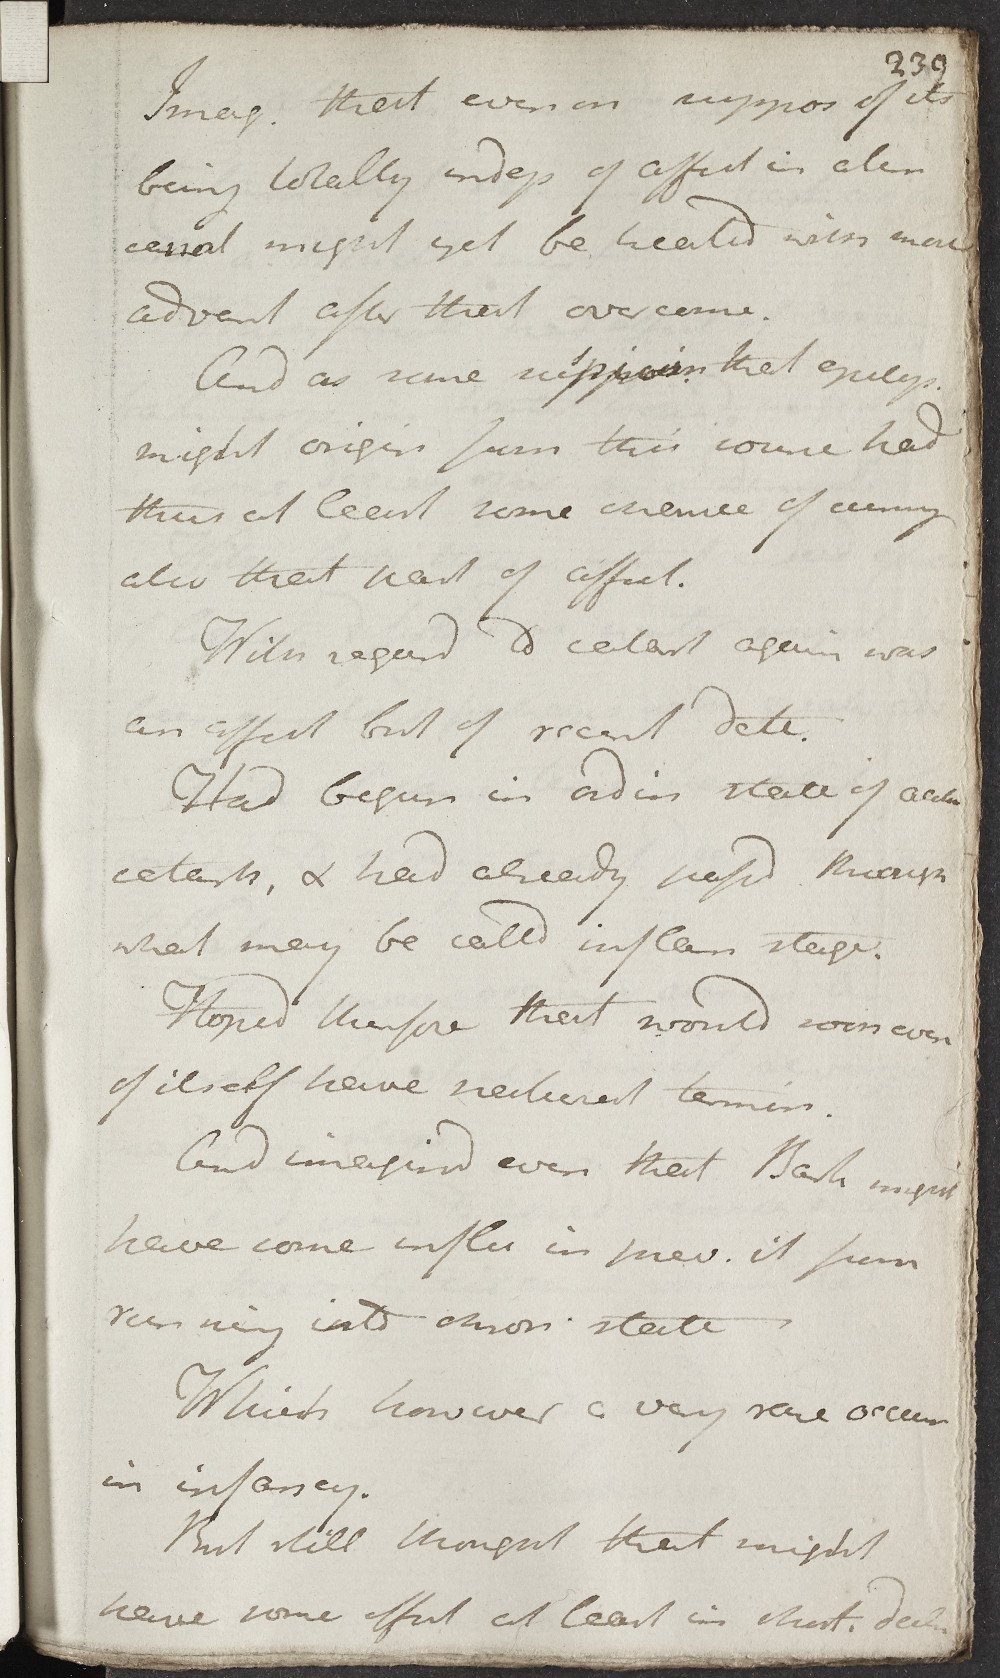 239
Imag. that even on suppos of its
being totally indep of affect in alim
canal might yet be treated with more
advant after that overcome.
And as some suspicion that epileps.
might origin from this source had
thus at least some chance of curing
also that part of affect.
With regard to catarrh again was
an affect but of recent date.
Had begun in ordin state of acute
catarrh, & had already passd through
what may be called inflam stage.
Hoped therefore that would soon even
of itself have natural termin.
And imagind even that Bark might
have some influ in prev. it from
running into chron state
Which however a very rare occurr
in infancy.
But still thought that might
have some effect at least in short.